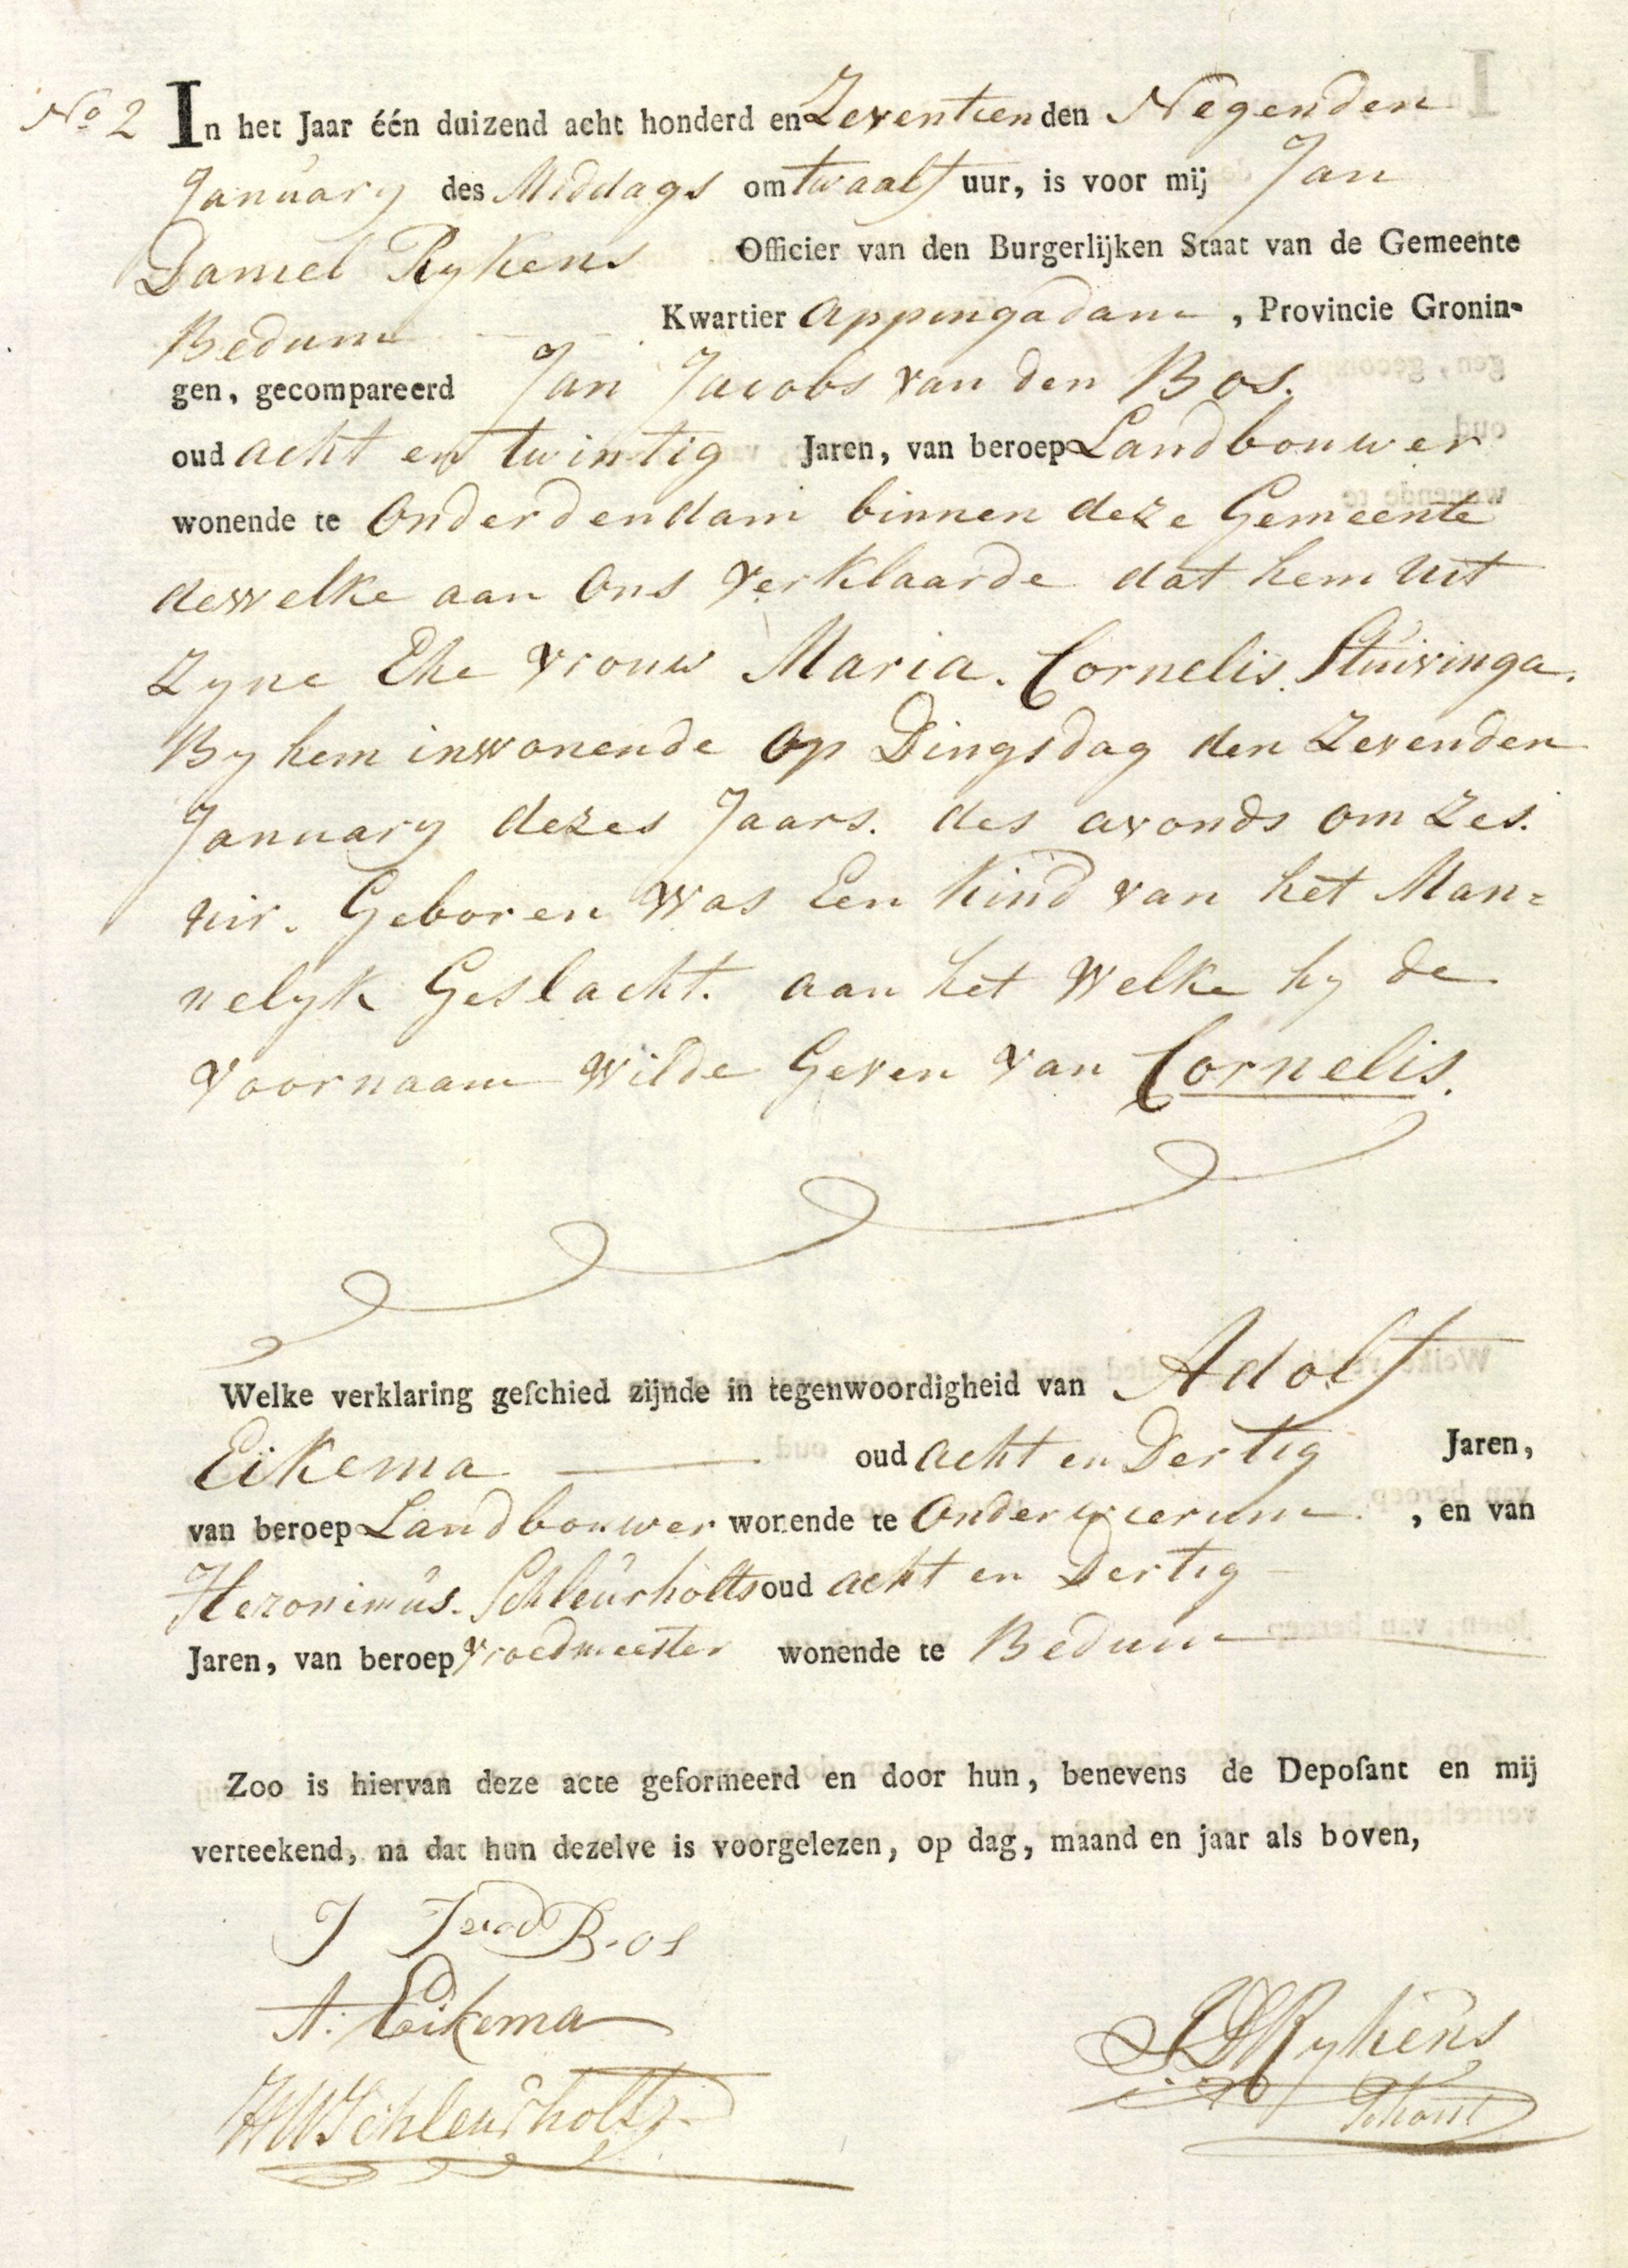 No 2 In het Jaar één duizend acht honderd en Zeventien den Negenden
January des Middags om twaalf uur, is voor mij Jan
Daniel Rykens Officier van den Burgerlijken Staat van de Gemeente
Bedum Kwartier Appingadam, Provincie Gronin-
gen, gecompareerd Jan Jacobs van den Bos.
oud acht en twintig Jaren, van beroep Landbouwer
wonende te Onderdendam binnen deze Gemeente
dewelke aan Ons verklaarde dat hem uit
Zyne Ehe vrouw Maria. Cornelis. Stuivinga.
By hem inwonende Op Dingsdag den Zevenden
January dezes Jaars. des avonds om Zes.
uir. Geboren was Een Kind van het Man=
nelyk Geslacht. aan het Welke hy de
Voornaam Wilde Geven van Cornelis.
Welke verklaring geſchied zijnde in tegenwoordigheid van Adolf
Eikema oud acht en Dertig Jaren,
van beroep Landbouwer wonende te Onderwierum, en van
Heronimus. Schleurholts oud acht en Dertig
Jaren, van beroep Vroedmeester wonende te Bedum
Zoo is hiervan deze acte geformeerd en door hun, benevens de Depoſant en mij
verteekend, na dat hun dezelve is voorgelezen, op dag, maand en jaar als boven,
J J vd Bos
A. Eikema
HW Schleurholts
JD Rykens
Schout